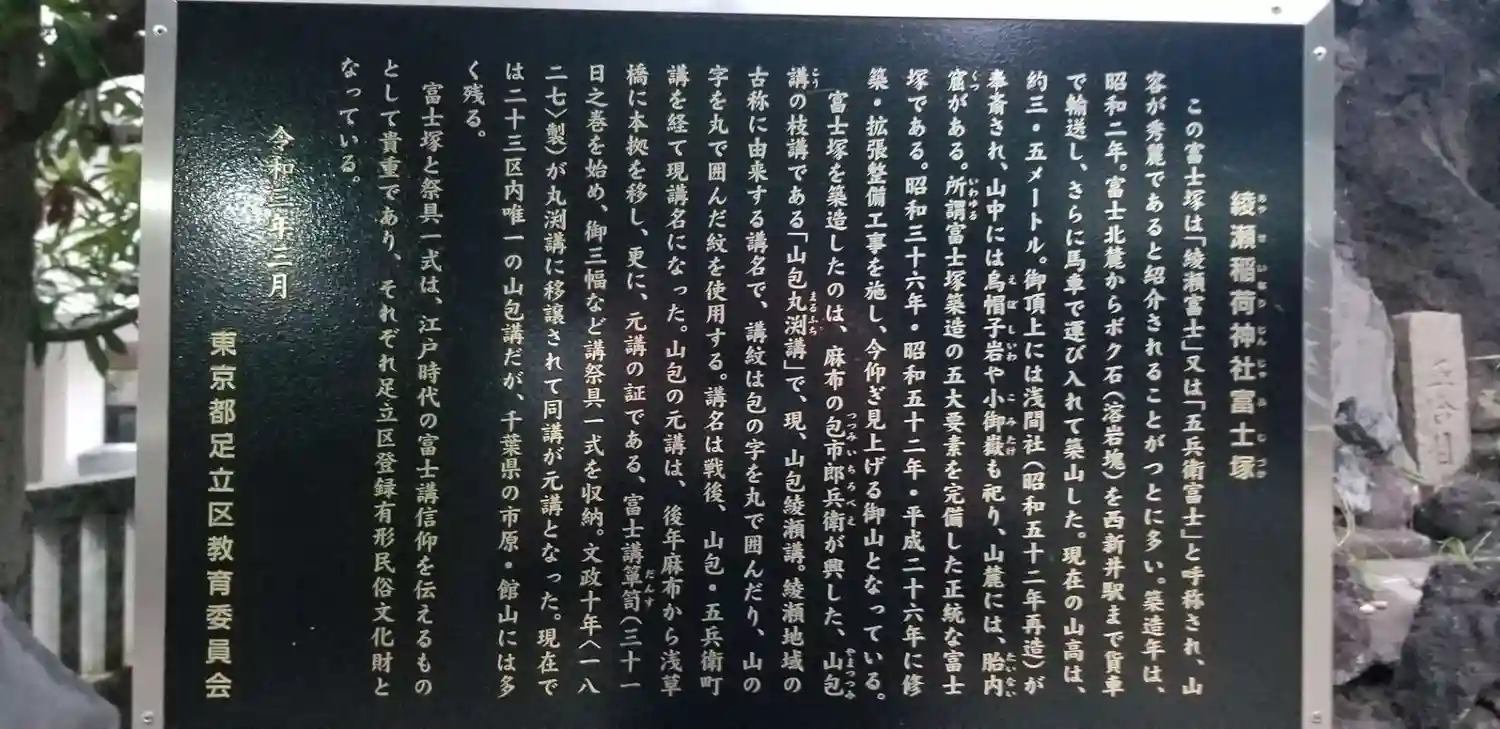 綾瀬稲荷神社富士塚
この富士塚は「綾瀬富士」又は「五兵衛富士」と呼称され、山
容が秀麗であると紹介されることがつとに多い。築造年は、
昭和二年。富士北麓からボク石(溶岩塊)を西新井駅まで貨車
で輸送し、さらに馬車で運び入れて築山した。現在の山高は、
約三・五メートル。御頂上には浅間社(昭和五十二年再造)が
奉斎され、山中には烏帽子岩や小御嶽も祀り、山麓には、胎内
窟がある。所謂富士塚築造の五大要素を完備した正統な富士
塚である。昭和三十六年・昭和五十二年・平成二十六年に修
築・拡張整備工事を施し、今仰ぎ見上げる御山となっている。
富士塚を築造したのは、麻布の包市郎兵衛が興した、山包
講の枝講である「山包丸渕講」で、現、山包綾瀬講。綾瀬地域の
古称に由来する講名で、講紋は包の字を丸で囲んだり、山の
字を丸で囲んだ紋を使用する。講名は戦後、山包・五兵衛町
講を経て現講名になった。山包の元講は、後年麻布から浅草
橋に本拠を移し、更に、元講の証である、富士講簞笥(三十一
日之巻を始め、御三幅など講祭具一式を収納。文政十年〈一八
二七〉製)が丸渕講に移譲されて同講が元講となった。現在で
は二十三区内唯一の山包講だが、千葉県の市原・館山には多
く残る。
富士塚と祭具一式は、江戸時代の富士講信仰を伝えるもの
として貴重であり、それぞれ足立区登録有形民俗文化財と
なっている。
令和三年二月
東京都足立区教育委員会
五合目